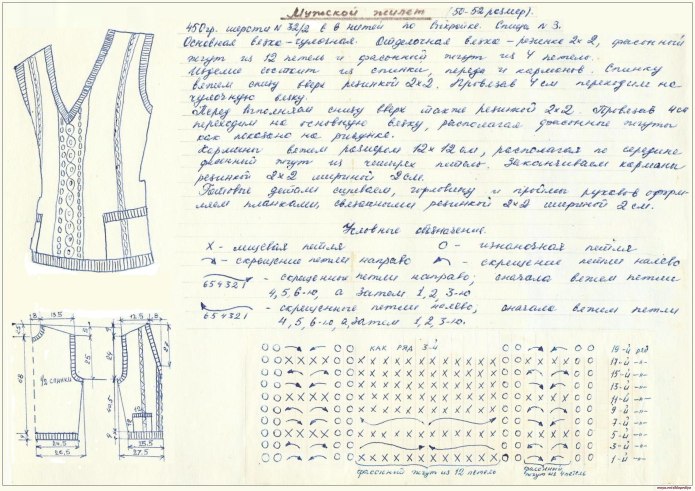 Мужской жилет (50-52 размер).
450 гр. шерсти N 32/2 в 6 нитей по выкройке. Спицы N 3.
Основная вязка - чулочная. Отделочная вязка - резинка 2х2, фасонный
жгут из 12 петель и фасонный жгут из 4 петель.
Изделие состоит из спинки, переда и карманов. Спинку
вяжем снизу вверх резинкой 2х2. Провязав 4 см переходим на
чулочную вязку.
Перед выполняем снизу вверх также резинкой 2х2. Провязав 4 см
переходим на основную вязку, располагая фасонные жгуты
как показано на рисунке.
Карманы вяжем размером 12х12 см, располагая по середине
фасонный жгут из четырех петель. Заканчиваем карманы
резинкой 2х2 шириной 2 см.
Готовые детали сшиваем, горловину и проймы рукавов оформ-
ляем планками, связанными резинкой 2х2 шириной 2 см.
Условные обозначения.
Х - лицевая петля О - изнаночная петля
- скрещение петель направо - скрещение петель налево
- скрещение петель направо; сначала вяжем петли
654321 4, 5, 6-ю, а затем 1, 2, 3-ю.
- скрещение петель налево; сначала вяжем петли
654321 4, 5, 6-ю, а затем 1, 2, 3-ю.
1/2 спинки
24,5
26,5
25,5
27,5
как ряд 3-й
19-й ряд
17-й -"-
15-й -"-
13-й -"-
11-й -"-
9-й -"-
7-й -"-
5-й -"-
3-й -"-
1-й -"-
фасонный жгут из 12 петель
фасонный
жгут из 4 петель